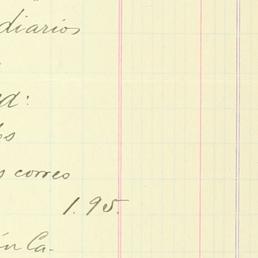 diarios
ed:
s correo
1.95.
ón Ca-